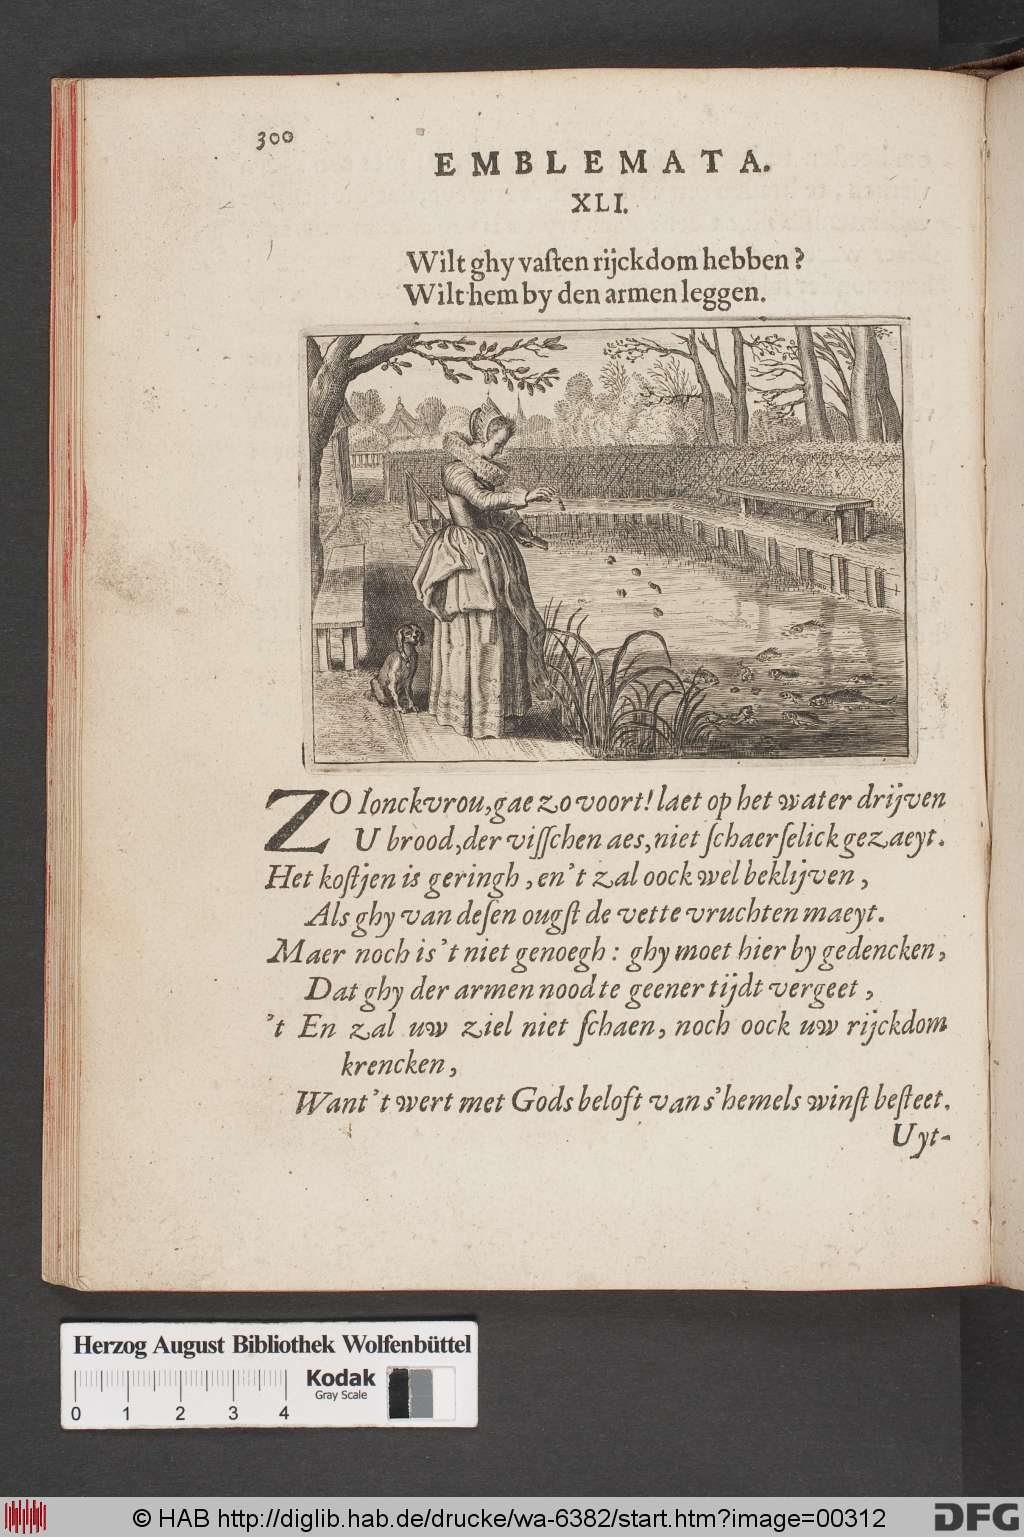 300
EMBLEMATA.
XLI.
Wilt ghy vaſten rijckdom hebben?
Wilt hem by den armen leggen.
ZO Ionckvrou, gae zo voort! laet op het water drijven
U brood, der viſſchen aes, niet ſchaerſelick gezaeyt.
Het koſtjen is geringh, en't zal oock wel beklijven,
Als ghy van deſen ougſt de vette vruchten maeyt.
Maer noch is't niet genoegh: ghy moet hier by gedencken,
Dat ghy der armen nood te geener tijdt vergeet,
't En zal uw ziel niet ſchaen, noch oock uw rijckdom
krencken,
Want't wert met Gods beloft van s'hemels winſt beſteet.
Uyt-
Herzog August Bibliothek Wolfenbüttel
Kodak
Gray Scale
0 1 2 3 4
© HAB http://diglib.hab.de/drucke/wa-6382/start.htm?image=00312
DFG